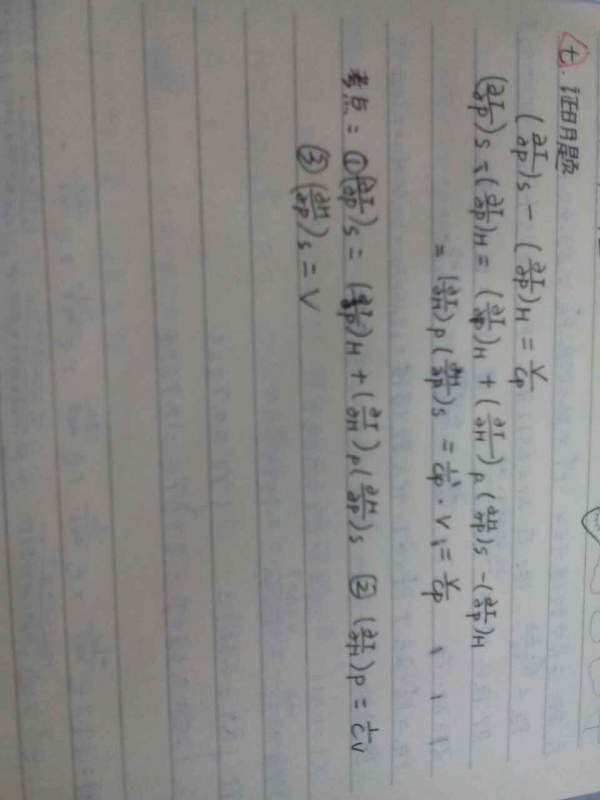 七. 证明题
(∂T/∂p)s - (∂T/∂p)H = V/Cp
(∂T/∂p)s - (∂T/∂p)H = (∂T/∂p)H + (∂T/∂H)p (∂H/∂p)s - (∂T/∂p)H
= (∂T/∂H)p (∂H/∂p)s = 1/Cp · V = V/Cp
考点: ①(∂T/∂p)s = (∂T/∂p)H + (∂T/∂H)p (∂H/∂p)s ② (∂T/∂H)p = 1/CV
③ (∂H/∂p)s = V